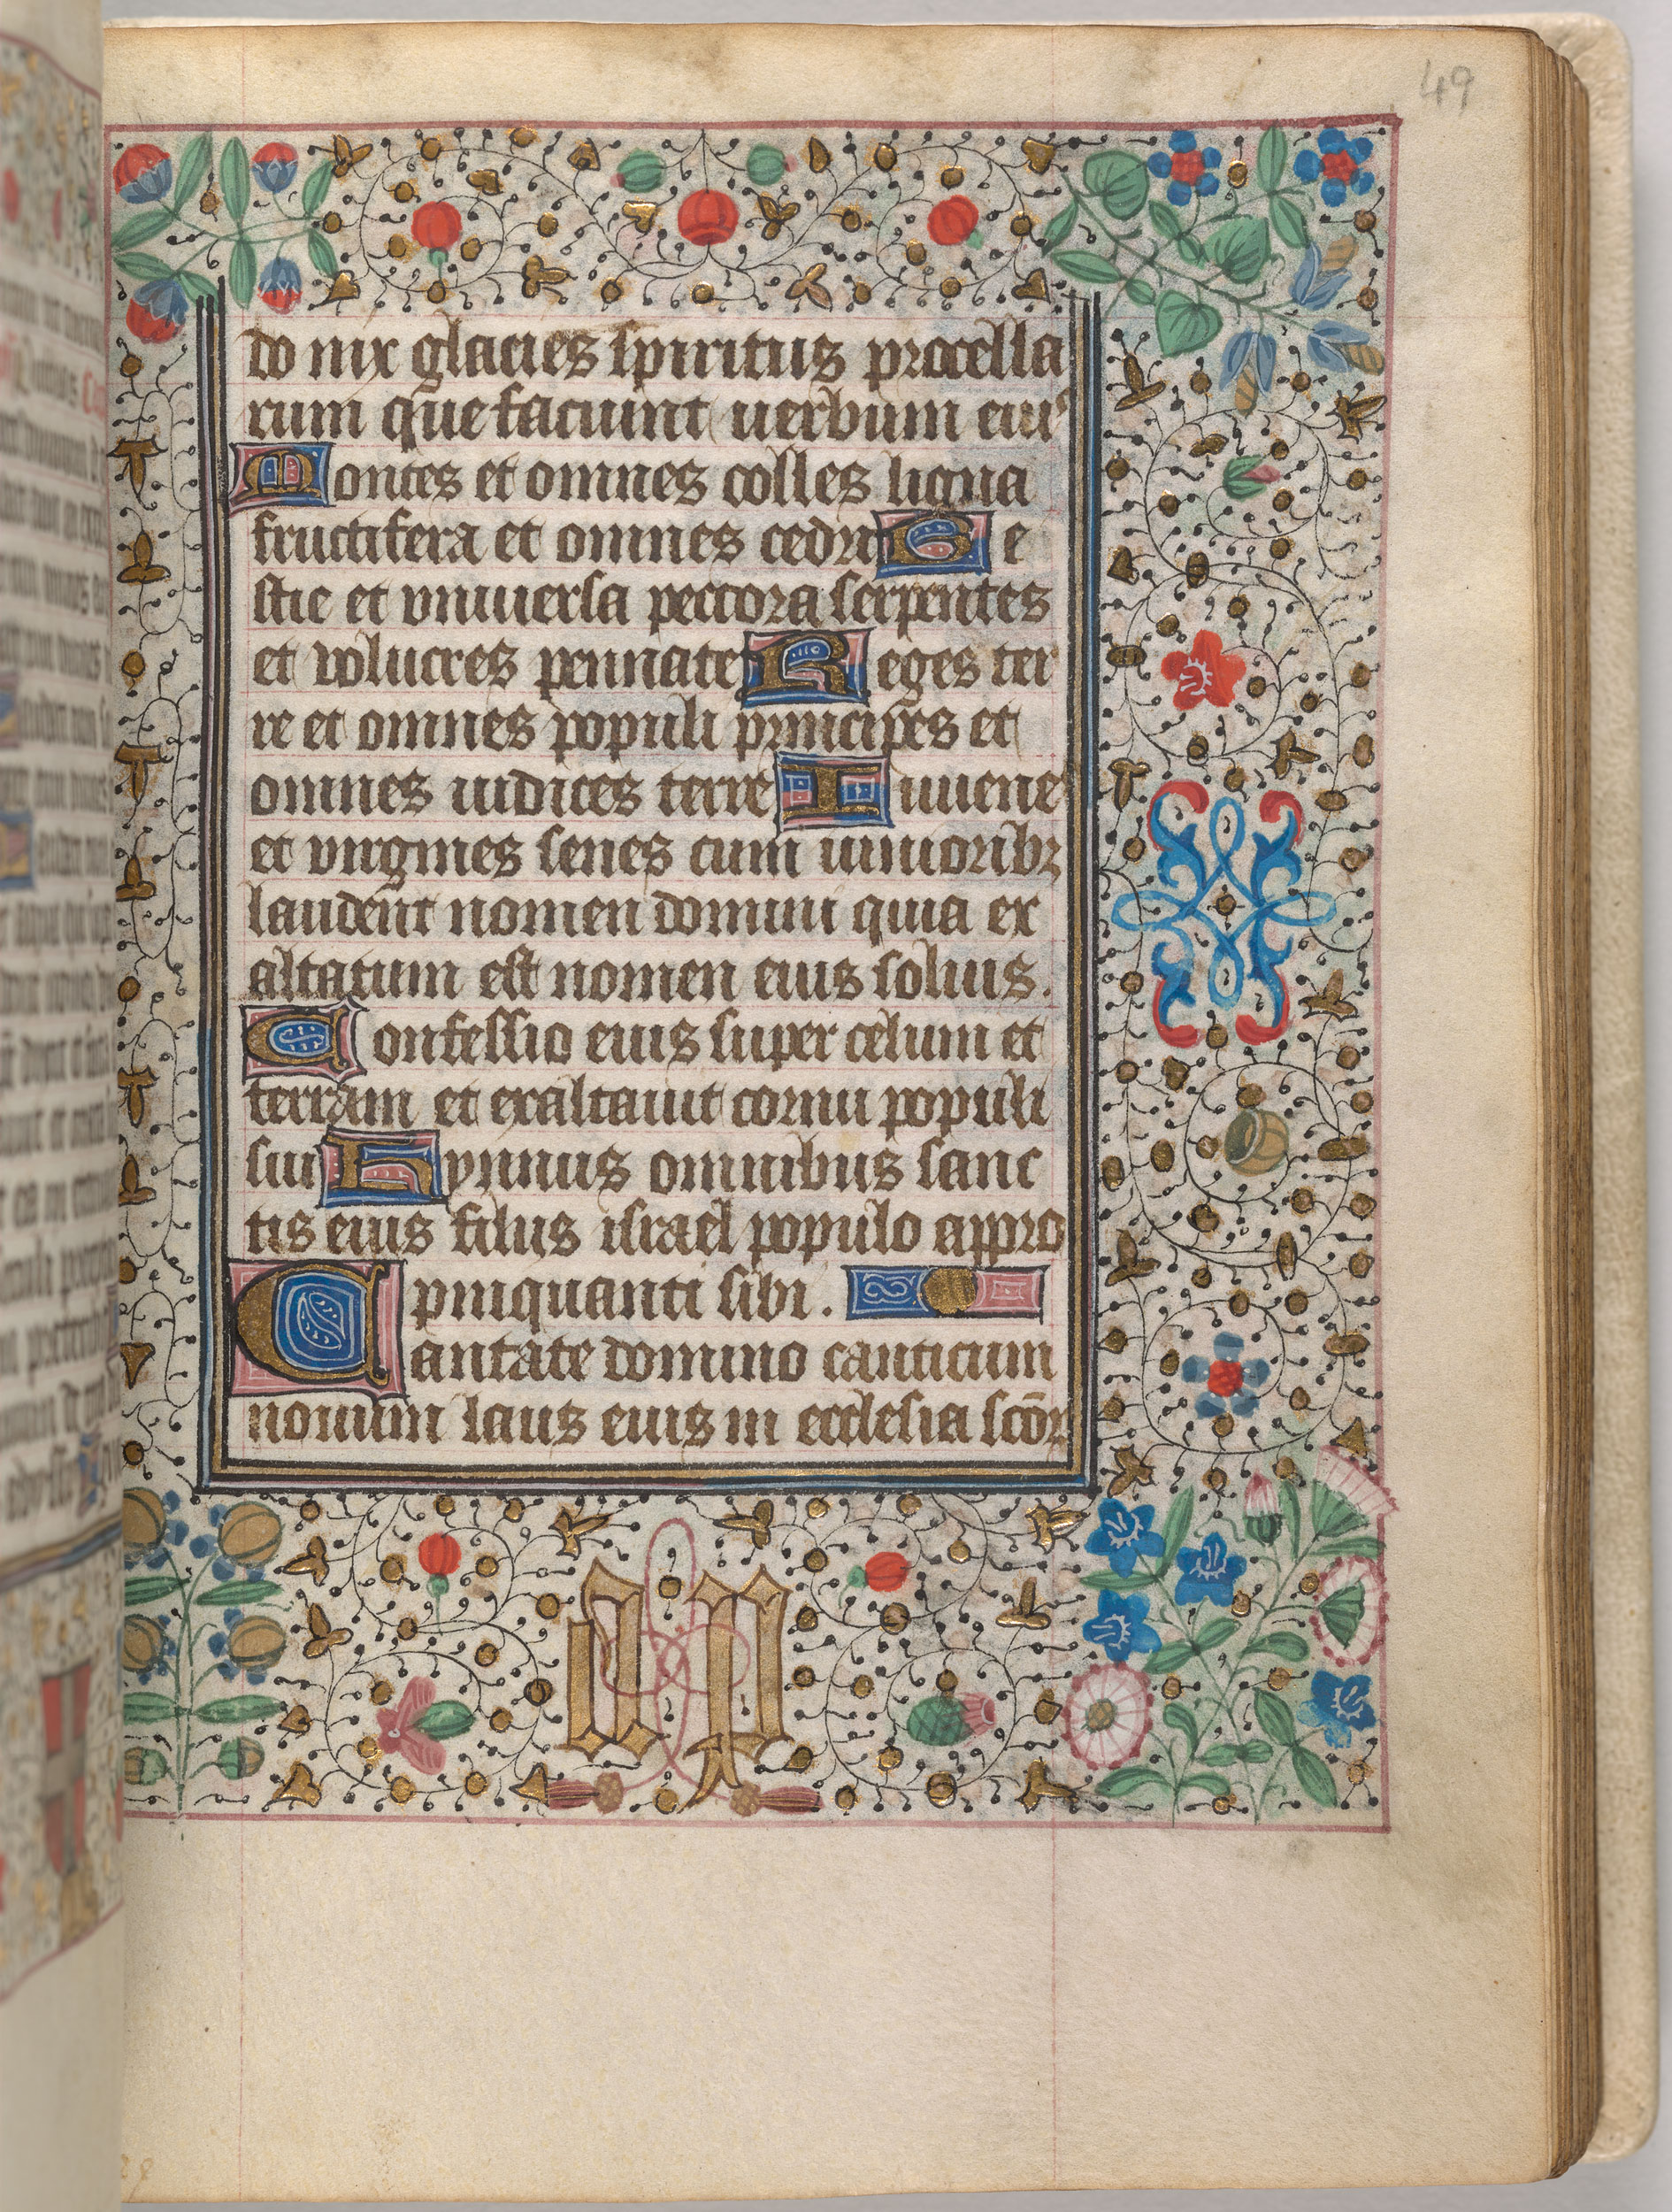 49
do nix glacies spiritus procella
rum que faciunt uerbum eiuꝰ
Montes et omnes colles ligna
fructifera et omnes cedri Be
stie et vniuersa peccora serpentes
et volucres pennate Reges ter
re et omnes populi principes et
omnes iudices terre Iuuene
et virgines senes cum iunioribꝫ
laudent nomen domini quia ex
altatum est nomen eius solius.
Confessio eius super celum et
terram et exaltauit cornu populi
sui Hymnus omnibus sanc
tis eius filiis israel populo appro
pinquanti sibi.
Cantate domino canticum
nouum laus eius in ecclesia scōꝝ